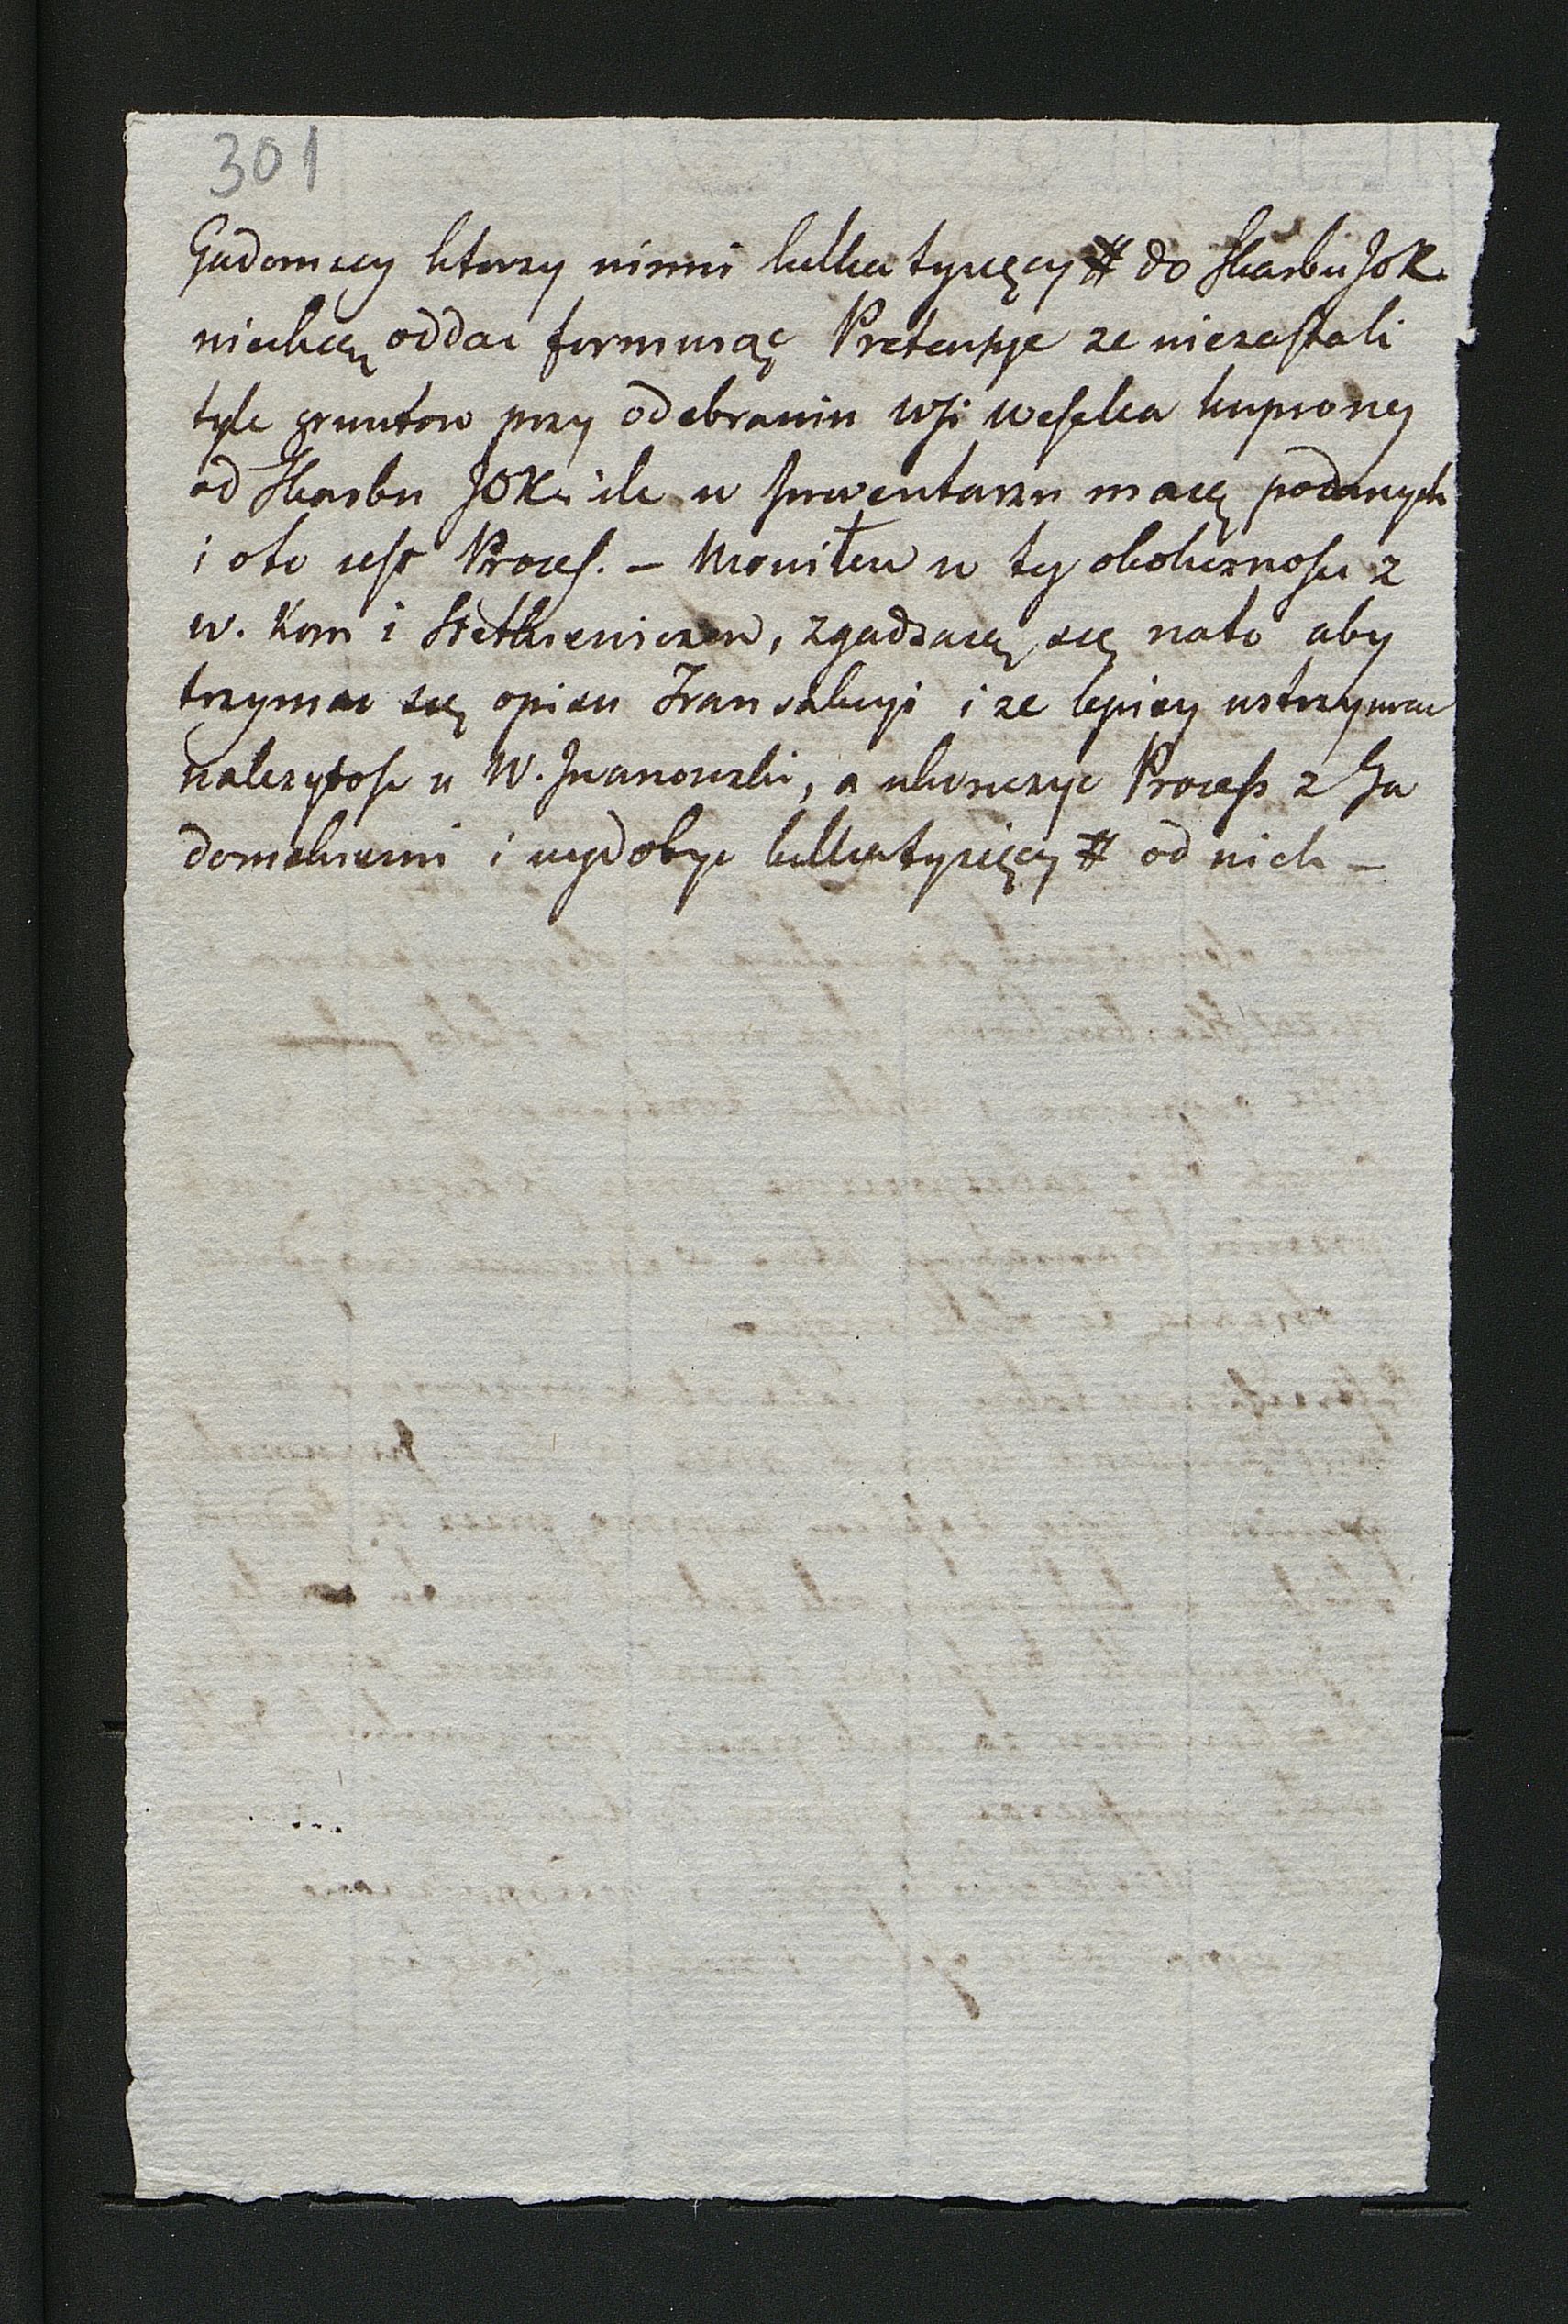 301
Gadomscy ktorzy winni kilkatysięcy # do Skarbu JOK.
niechcą oddac formuiąc Pretensye ze niezastali
tyle gruntow przy odebraniu wsi Wesołka kupioney
od Skarbu JOK. ile w Inwentarzu maią podanych
i oto iest Proces. – Mowiłem w tey okolicznosci z
W. Kom i Sietkiewiczem, zgadzaią się nato aby
trzymac się opisu Transakcyi i ze lepiey wstrzymac
nalezytosc u W. Iwanowski, a ukonczyc Process z Ga
domskiemi i wydobyc kilkatysięcy # od nich –